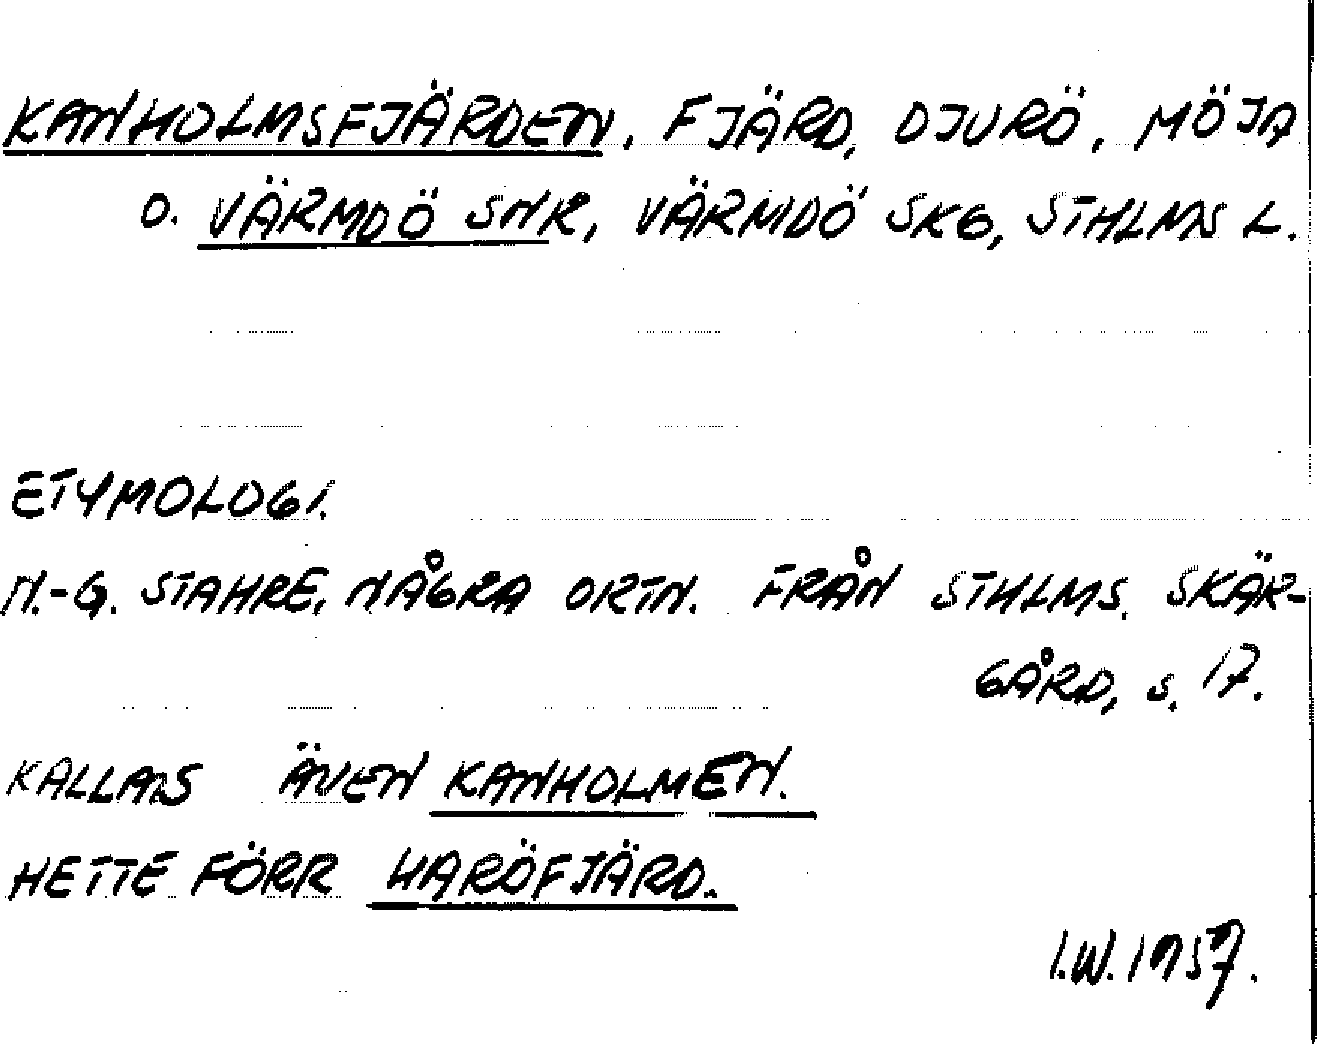 KANHOLMSFJÄRDEN, FJÄRD, DJURÖ, MÖJA
O. VÄRMDÖ SNR, VÄRMDÖ SKG, STHLMS L.
ETYMOLOGI.
N.-G. STAHRE, NÅGRA ORTN. FRÅN STHLMS. SKÄR-
GÅRD, s. 17.
KALLAS ÄVEN KANHOLMEN.
HETTE FÖRR HARÖFJÄRD.
I.W. 1957.